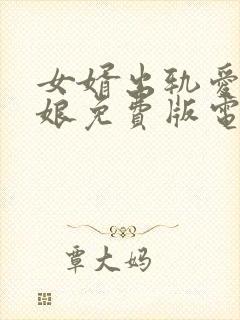 女婿出轨爱
娘免费版电
覃大妈